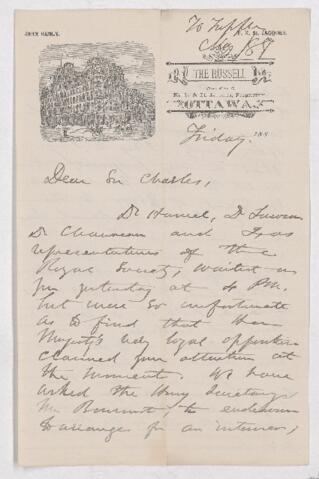 To Tupper
May 1887
THE RUSSELL
OTTAWA,
Friday, 188
Dear Sir Charles,
Dr Hamel, D
Dr Chauveau and I as
representatives of the
Royal Society, waited on
you yesterday at 4 P.M.
but were so unfortunate
as to find that Her
Majesty's loyal opposition
claimed your attention at
the moment. We have
asked the Hony Secretary
Mr Bourinot, to endeavour
to arrange for an interview,